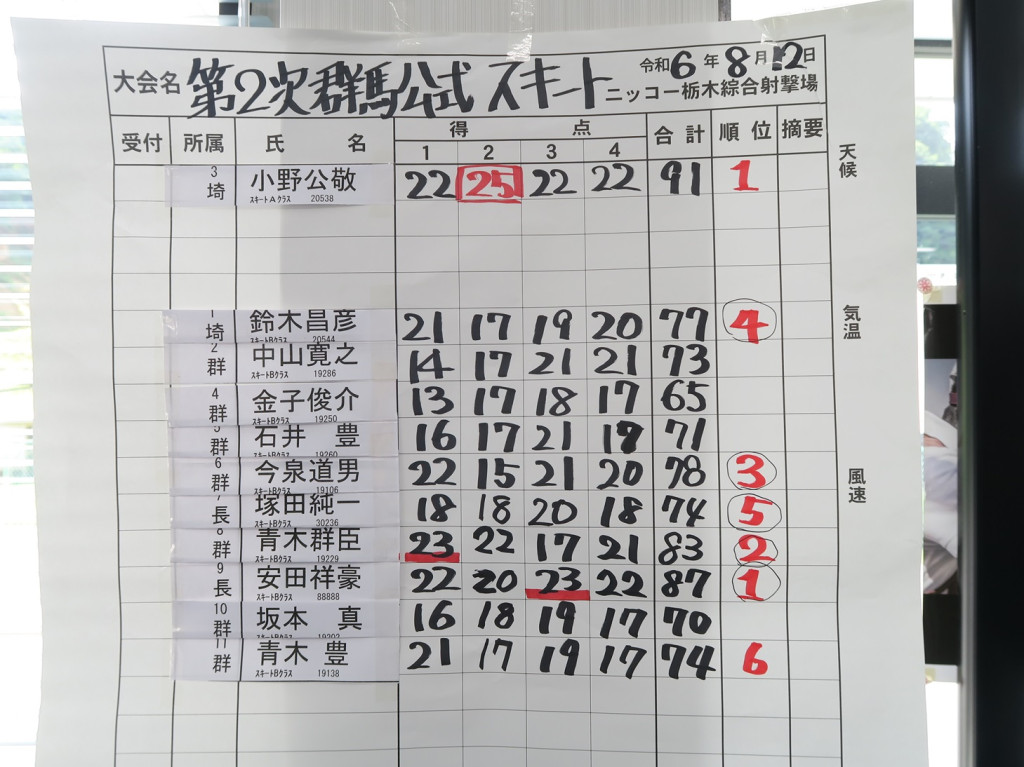 大会名 第2次群馬公式 スキート 令和6年8月12日
ニッコー栃木綜合射撃場
受付 所属 氏名 得点 合計 順位 摘要
1 2 3 4
天候
3 埼 小野公敬 22 25 22 22 91 1
スキートAクラス 20538
気温
1 埼 鈴木昌彦 21 17 19 20 77 4
スキートBクラス 20544
2 群 中山寛之 14 17 21 21 73
スキートBクラス 19286
4 群 金子俊介 13 17 18 17 65
スキートBクラス 19250
5 群 石井 豊 16 17 21 17 71
スキートBクラス 19260
6 群 今泉道男 22 15 21 20 78 3
スキートBクラス 19106
風速
7 長 塚田純一 18 18 20 18 74 5
スキートBクラス 30236
8 群 青木群臣 23 22 17 21 83 2
スキートBクラス 19229
9 長 安田祥豪 22 20 23 22 87 1
スキートBクラス 88888
10 群 坂本 真 16 18 19 17 70
スキートBクラス
11 群 青木 豊 21 17 19 17 74 6
スキートBクラス 19138